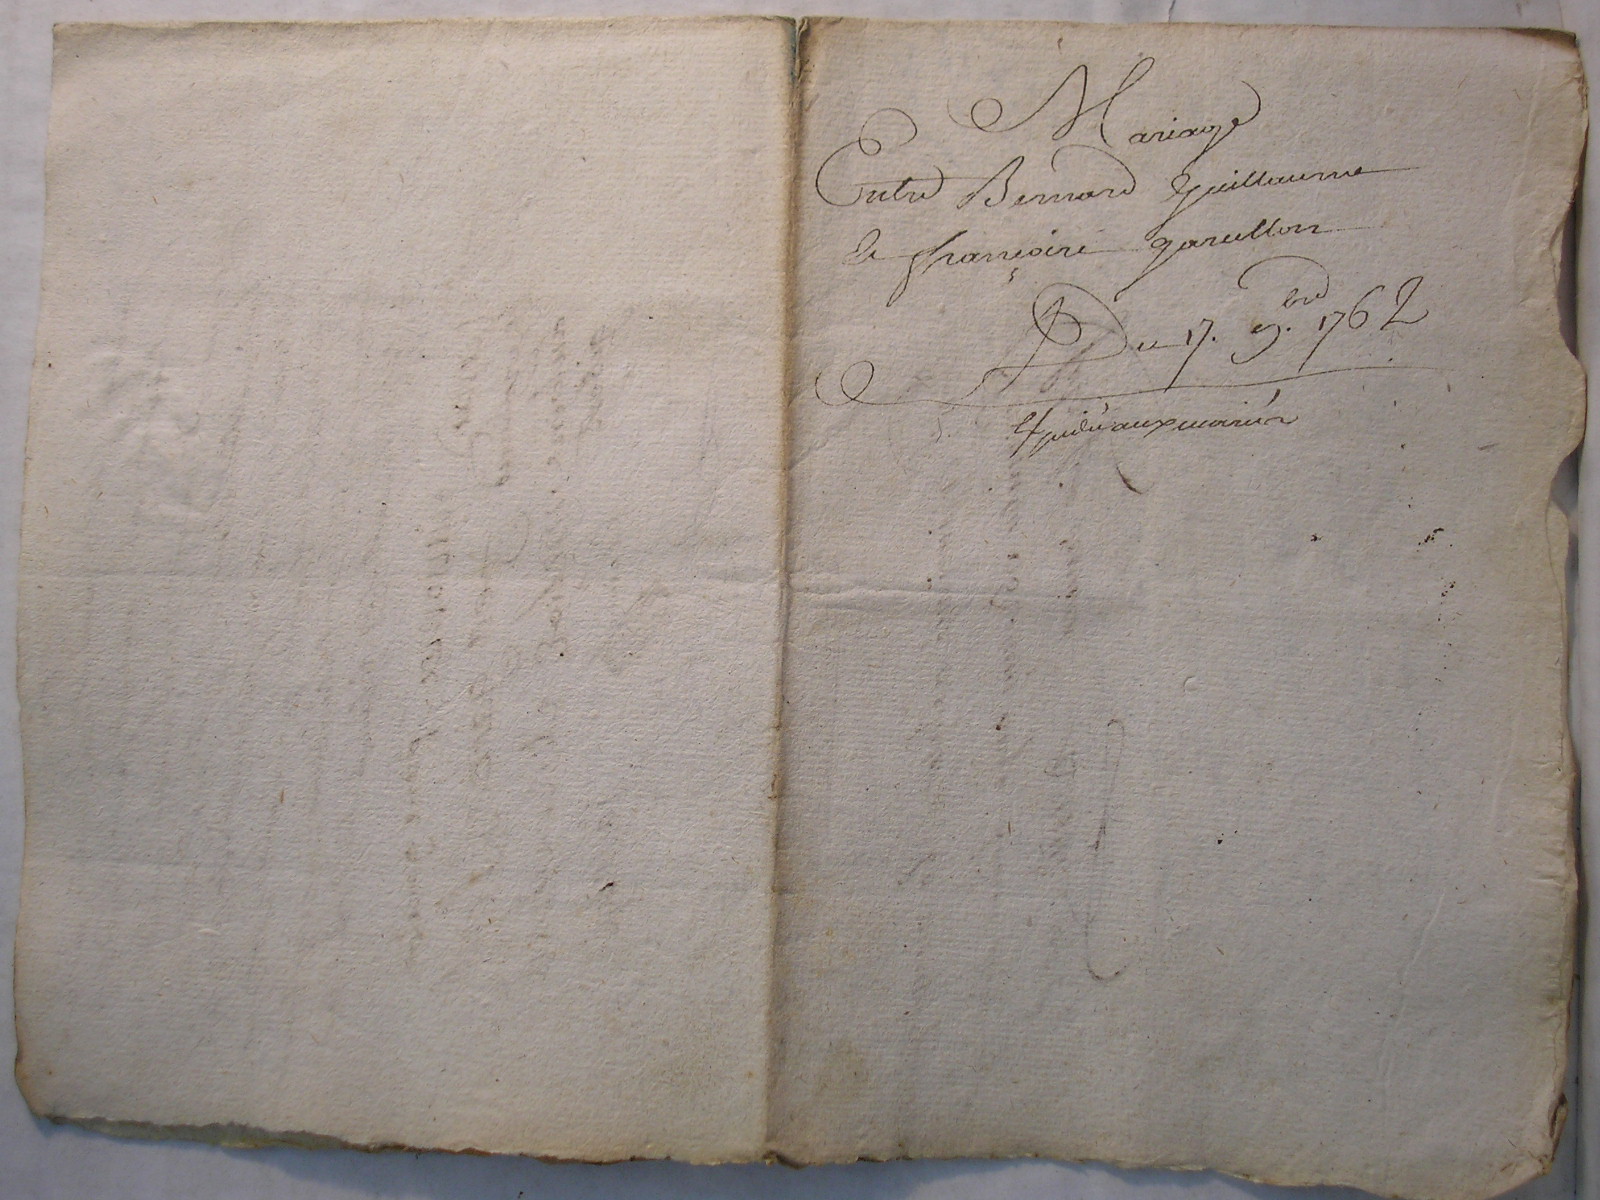 Mariage
Entre Bernard Guillaume
et françoise garcillon
Du 17. 9.bre 1762
Expédié aux mariés